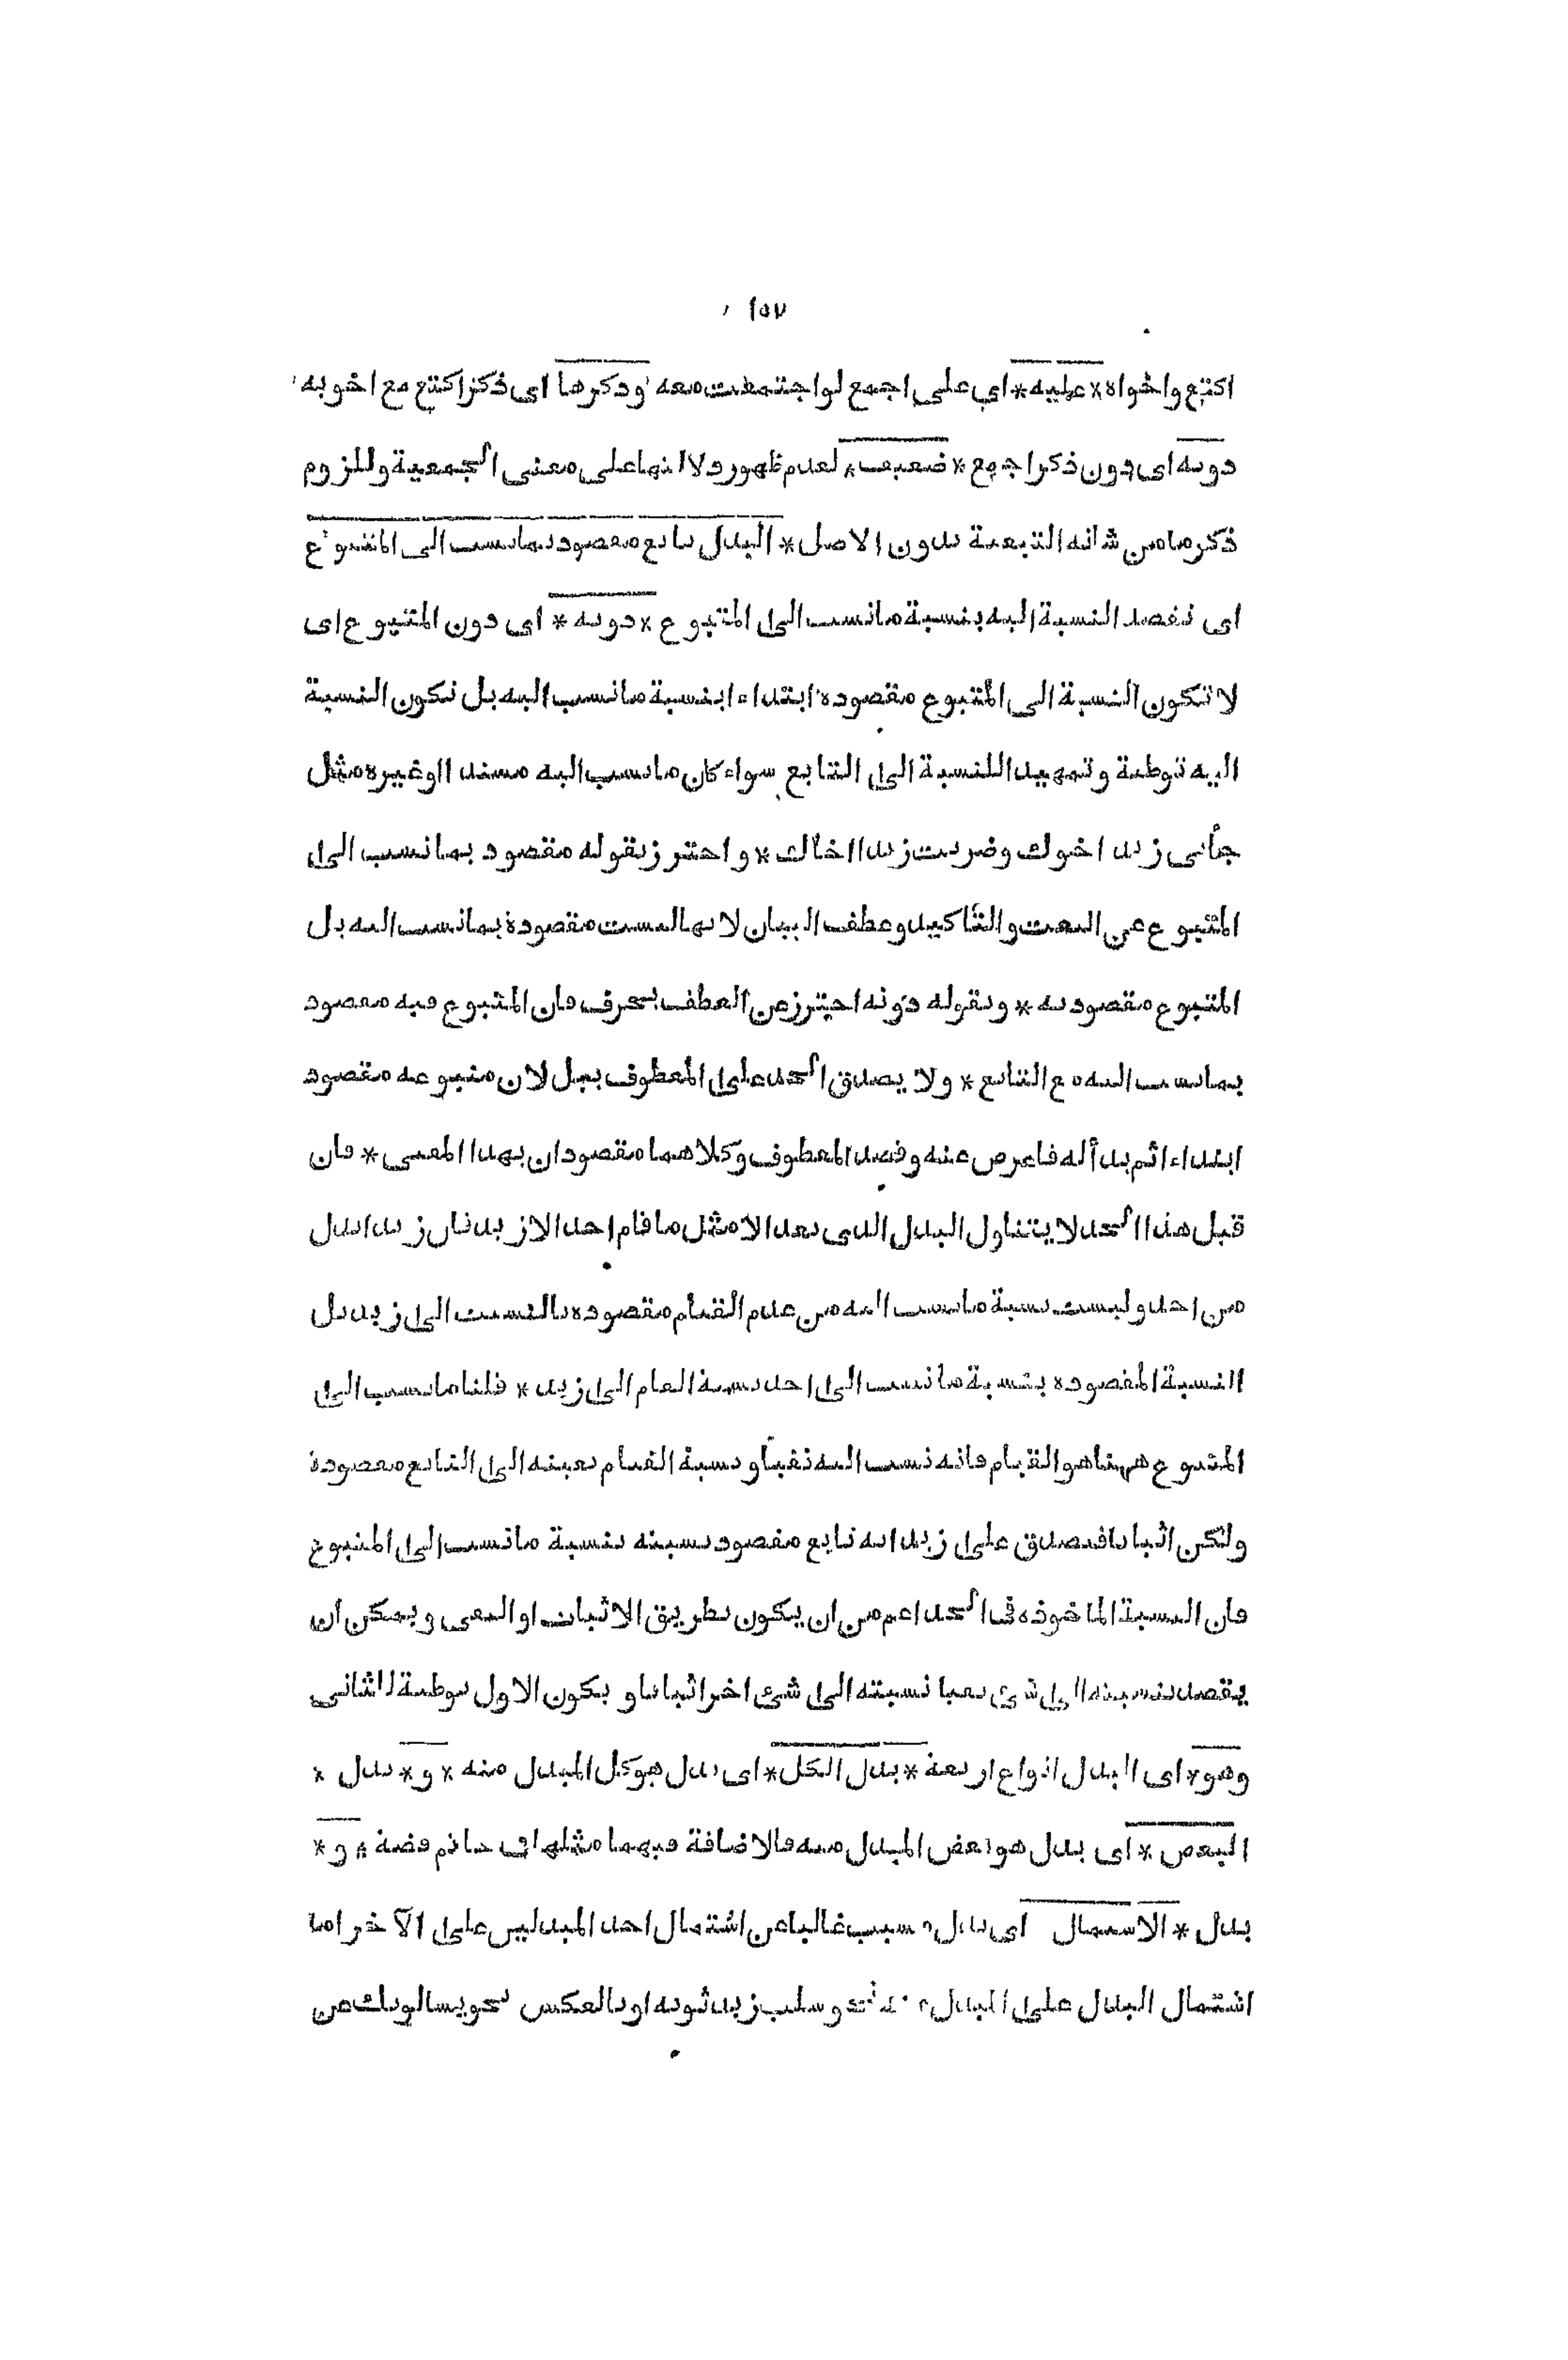 ١٥٧
اكتع واخواه * عليه * اي على اجمع لو اجتمعت معه وذكرها اى ذكر اكتع مع اخويه
دونه اى دون ذكر اجمع * ضعيف * لعدم ظهور دلالتها على معنى الجمعية وللزوم
ذكر ما من شانه التبعية بدون الاصل * البدل تابع مقصود بما نسب الى المتبوع
اى تقصد النسبة اليه بنسبة ما نسب الى المتبوع * دونه * اى دون المتبوع اى
لا تكون النسبة الى المتبوع مقصودة ابتداء ابنسبة ما نسب اليه بل تكون النسبة
اليه توطية وتمهيدا للنسبة الى التابع سواء كان ما نسب اليه مسندا او غيره مثل
جأنى زيد اخوك وضربت زيدا اخاك * واحترز بقوله مقصود بما نسب الى
المتبوع عن النعت والتأكيد وعطف البيان لانها ليست مقصودة بما نسب اليه بل
المتبوع مقصود به * وبقوله دونه احترز عن العطف بحرف فان المتبوع فيه مقصود
بما نسب اليه مع التابع * ولا يصدق الحد على المعطوف ببل لان متبوعه مقصود
ابتداء اثم بدأ له فاعرض عنه وقصد المعطوف وكلاهما مقصودان بهذا المعنى * فان
قيل هذا الحد لا يتناول البدل الذى بعد الا مثل ما قام احد الا زيد فان زيد ابدل
من احد وليست نسبة ما نسب اليه من عدم القيام مقصودة بالنسبت الى زيد بل
النسبة المقصودة بنسبة ما نسب الى احد نسبة القيام الى زيد * قلنا ما نسب الى
المتبوع ههنا هو القيام فانه نسب اليه نفيا ونسبة القيام بعينه الى التابع مقصودة
ولكن اثباتا فيصدق على زيد انه تابع مقصود نسبته بنسبة ما نسب الى المتبوع
فان النسبة الماخوذة فى الحد اعم من ان يكون بطريق الاثبات او النفى ويمكن ان
يقصد بنسبته الى شئ نفيا نسبته الى شئ اخر اثباتا و يكون الاول توطية للثانى
وهو * اى البدل انواع اربعة * بدل الكل * اى بدل هو كل المبدل منه * و * بدل *
البعض * اى بدل هو بعض المبدل منه فالاضافة فيهما مثلها فى خاتم فضة * و *
بدل * الاشتمال اى بدل سبب غالبا عن اشتمال احد المبدلين على الآخر اما
اشتمال البدل على المبدل منه نحو سلب زيد ثوبه او بالعكس نحو يسالونك عن